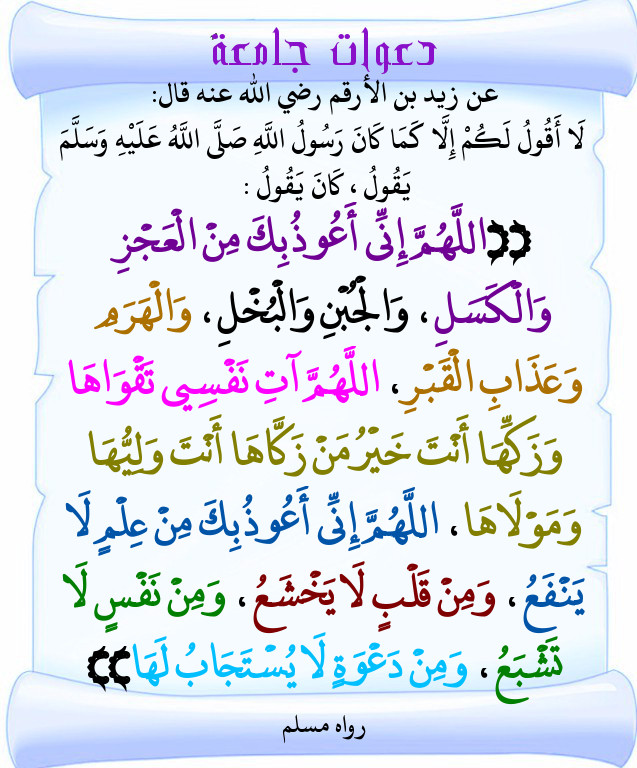 دعوات جامعة
عن زيد بن الأرقم رضي الله عنه قال:
لَا أَقُولُ لَكُمْ إِلَّا كَمَا كَانَ رَسُولُ اللَّهِ صَلَّى اللَّهُ عَلَيْهِ وَسَلَّمَ
يَقُولُ ، كَانَ يَقُولُ :
((اللَّهُمَّ إِنِّي أَعُوذُ بِكَ مِنْ الْعَجْزِ
وَالْكَسَلِ ، وَالْجُبْنِ وَالْبُخْلِ ، وَالْهَرَمِ
وَعَذَابِ الْقَبْرِ ، اللَّهُمَّ آتِ نَفْسِي تَقْوَاهَا
وَزَكِّهَا أَنْتَ خَيْرُ مَنْ زَكَّاهَا أَنْتَ وَلِيُّهَا
وَمَوْلَاهَا ، اللَّهُمَّ إِنِّي أَعُوذُ بِكَ مِنْ عِلْمٍ لَا
يَنْفَعُ ، وَمِنْ قَلْبٍ لَا يَخْشَعُ ، وَمِنْ نَفْسٍ لَا
تَشْبَعُ ، وَمِنْ دَعْوَةٍ لَا يُسْتَجَابُ لَهَا))
رواه مسلم